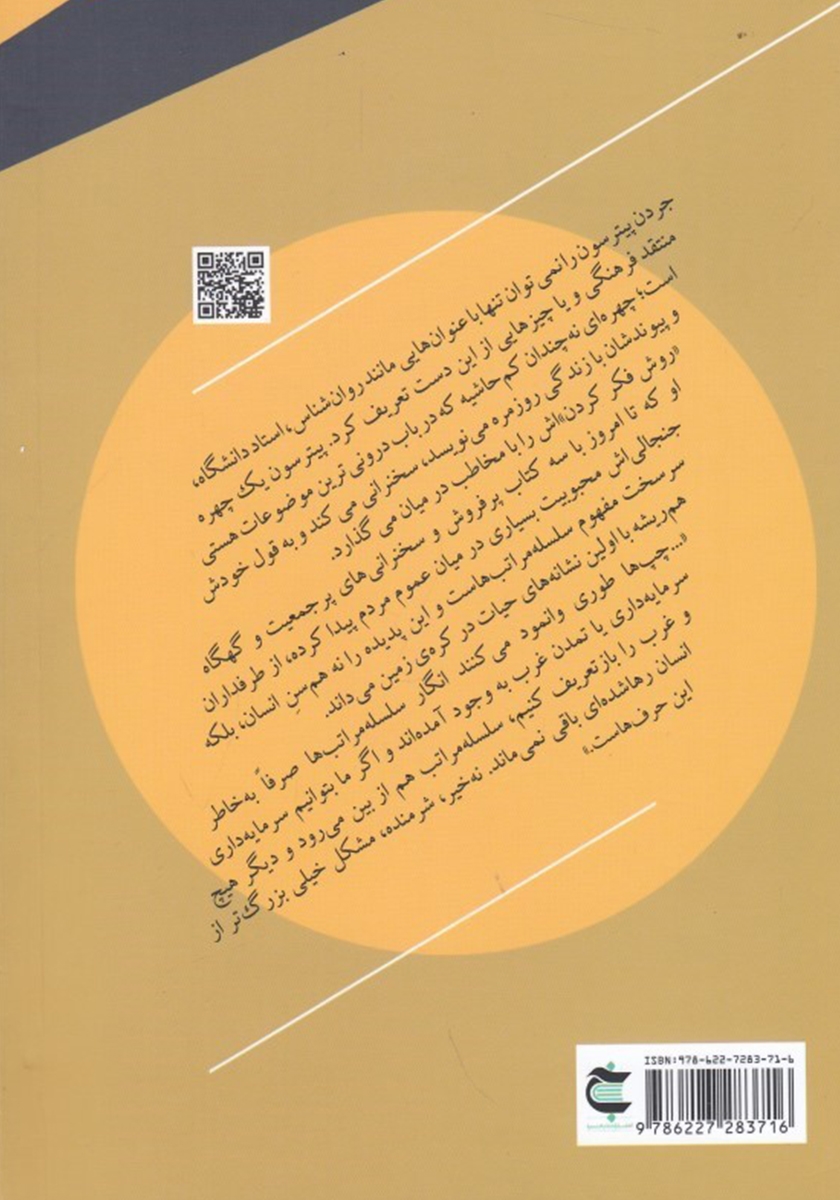 جردن پیترسون را نمی توان تنها با عنوان‌هایی مانند روان‌شناس، استاد دانشگاه،
منتقد فرهنگی و یا چیزهایی از این دست تعریف کرد. پیترسون یک چهره
است؛ چهره‌ای نه چندان کم حاشیه که در باب درونی ترین موضوعات هستی
و پیوندشان با زندگی روزمره می‌نویسد، سخنرانی می کند و به قول خودش
«روش فکر کردن»اش را با مخاطب در میان می گذارد.
او که تا امروز با سه کتاب پرفروش و سخنرانی‌های پر جمعیت و گهگاه
جنجالی‌اش محبوبیت بسیاری در میان عموم مردم پیدا کرده، از طرفداران
سرسخت مفهوم سلسله‌مراتب‌هاست و این پدیده را نه هم‌سنِ انسان، بلکه
هم‌ریشه با اولین نشانه‌های حیات در کره‌ی زمین می‌داند.
«...چپ‌ها طوری وانمود می کنند انگار سلسله‌مراتب‌ها صرفاً به‌خاطر
سرمایه‌داری یا تمدن غرب به وجود آمده‌اند و اگر ما بتوانیم سرمایه‌داری
و غرب را بازتعریف کنیم، سلسله‌مراتب هم از بین می‌رود و دیگر هیچ
انسان رهاشده‌ای باقی نمی‌ماند. نه‌خیر، شرمنده، مشکل خیلی بزرگ‌تر از
این حرف‌هاست.»
ISBN: 978-622-7283-71-6
9 786227 283716